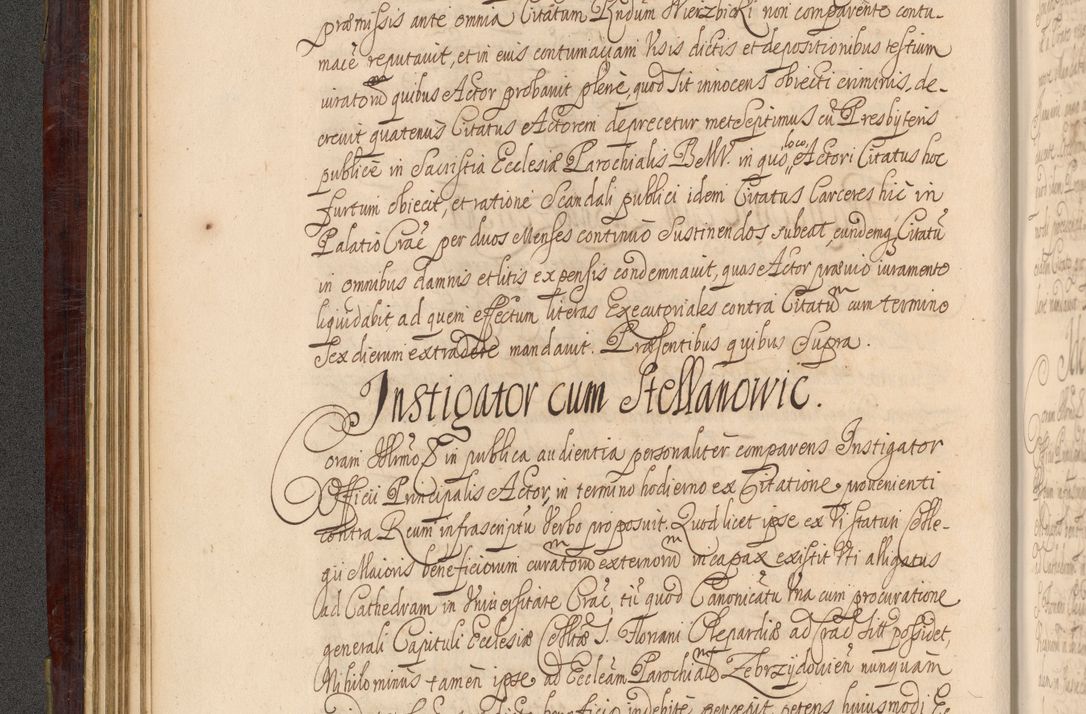 præmissis ante omnia Citatum Rndum Wierzbicki non comparente contu-
macē reputauit, et in euis contumaciam Visis dictis et depositionibus testium
iuratorū quibus Actor probauit plene, quod sit innocens obiecti criminis, de-
creuit quatenus Citatus Actorem deprecetur metseptimus cū Presbyteris
publice in Sacristia Ecclesiæ Parochialis B.M.V. in quo loco Actori Citatus hoc
furtum obiecit, et ratione Scandali publici idem Citatus Carceres hic in
Palatio Crac per duos Menses continuo Sustinendos subeat, eundemq Citatū
in omnibus damnis et litis expensis condemnauit, quas Actor præuio iuramento
liquidabit, ad quem effectum literas Executoriales contra Citatum cum termino
sex dierum extradere mandauit. Præsentibus quibus Supra.
Instigator cum Stellanowic.
Coram Illmo in publica audientia personaliter comparens Instigator
Officii Principalis Actor, in termino hodierno ex Citatione prouenienti
contra Reum infrascriptū Verbo proposuit. Quod licet ipse ex Vi statuti Colle-
gii Maioris beneficiorum curatorū externorū incapax existit Vti alligatus
ad Cathedram in Vniuersitate Crac, tū quod Canonicatū Vna cum procuratione
generali Capituli Ecclesiæ Colltæ S. Floriani Clepardiæ ad Crac sitt possidet,
Nihilominus tamen ipse ad Eccleām Parochialē Zebrzydouien nunquam
beneficio indebite percepit, petens huiusmodi